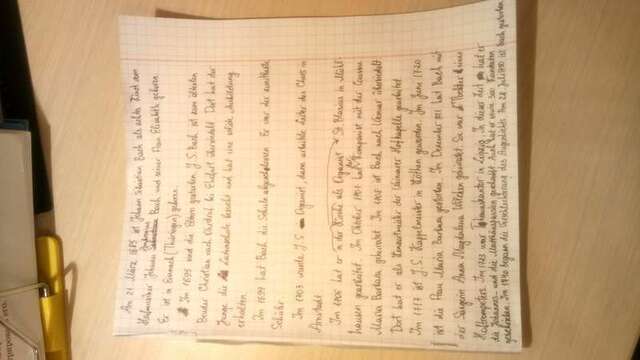 Am 21 März 1685 ist Johann Sebastian Bach als achtes Kind vom
Hofmusiker Johann Ambrosius Bach und seiner Frau Elisabeth geboren.
Er ist in Eisenach (Thüringen) geboren.
Im 1695 sind die Eltern gestorben. J.S. Bach ist zum älteren
Bruder Christian nach Ohrdruf bei Erfurt übersiedelt. Dort hat der
Junge die Lateinschule besucht und hat eine solide Ausbildung
erhalten.
Im 1699 hat Bach die Schule abgeschlossen. Er war der zweitbeste
Schüler.
Im 1703 wurde J.S. Organist, dann arbeitete Leiter des Chors in
Arnstadt.
Im 1706 hat er in der Kirche als Organist St. Blasius in Mühl-
hausen gearbeitet. Im Oktober 1707 hat Komponist mit der Cousine
Maria Barbara geheiratet. Im 1708 ist Bach nach Weimar übersiedelt
Dort hat er als Konzertmeister der Weimarer Hofkapelle gearbeitet.
Im 1717 ist J.S. Kapellmeister in Köthen geworden. Im June 1720
ist die Frau Maria Barbara gestorben. Im Dezember 1721 hat Bach mit
der Sängerin Anna Magdalena Wilcken geheiratet. Sie war Tochter eines
Hoftrompeters. Im 1723 war Thomaskantor in Leipzig. In dieser Zeit hat er
die Johannes- und die Matthäuspassion geschaffen. Auch hat er etwa 300 Kantaten
geschrieben. Im 1740 begann die Verschlechterung des Augenlichts. Am 28 Juli 1750 ist Bach gestorben.